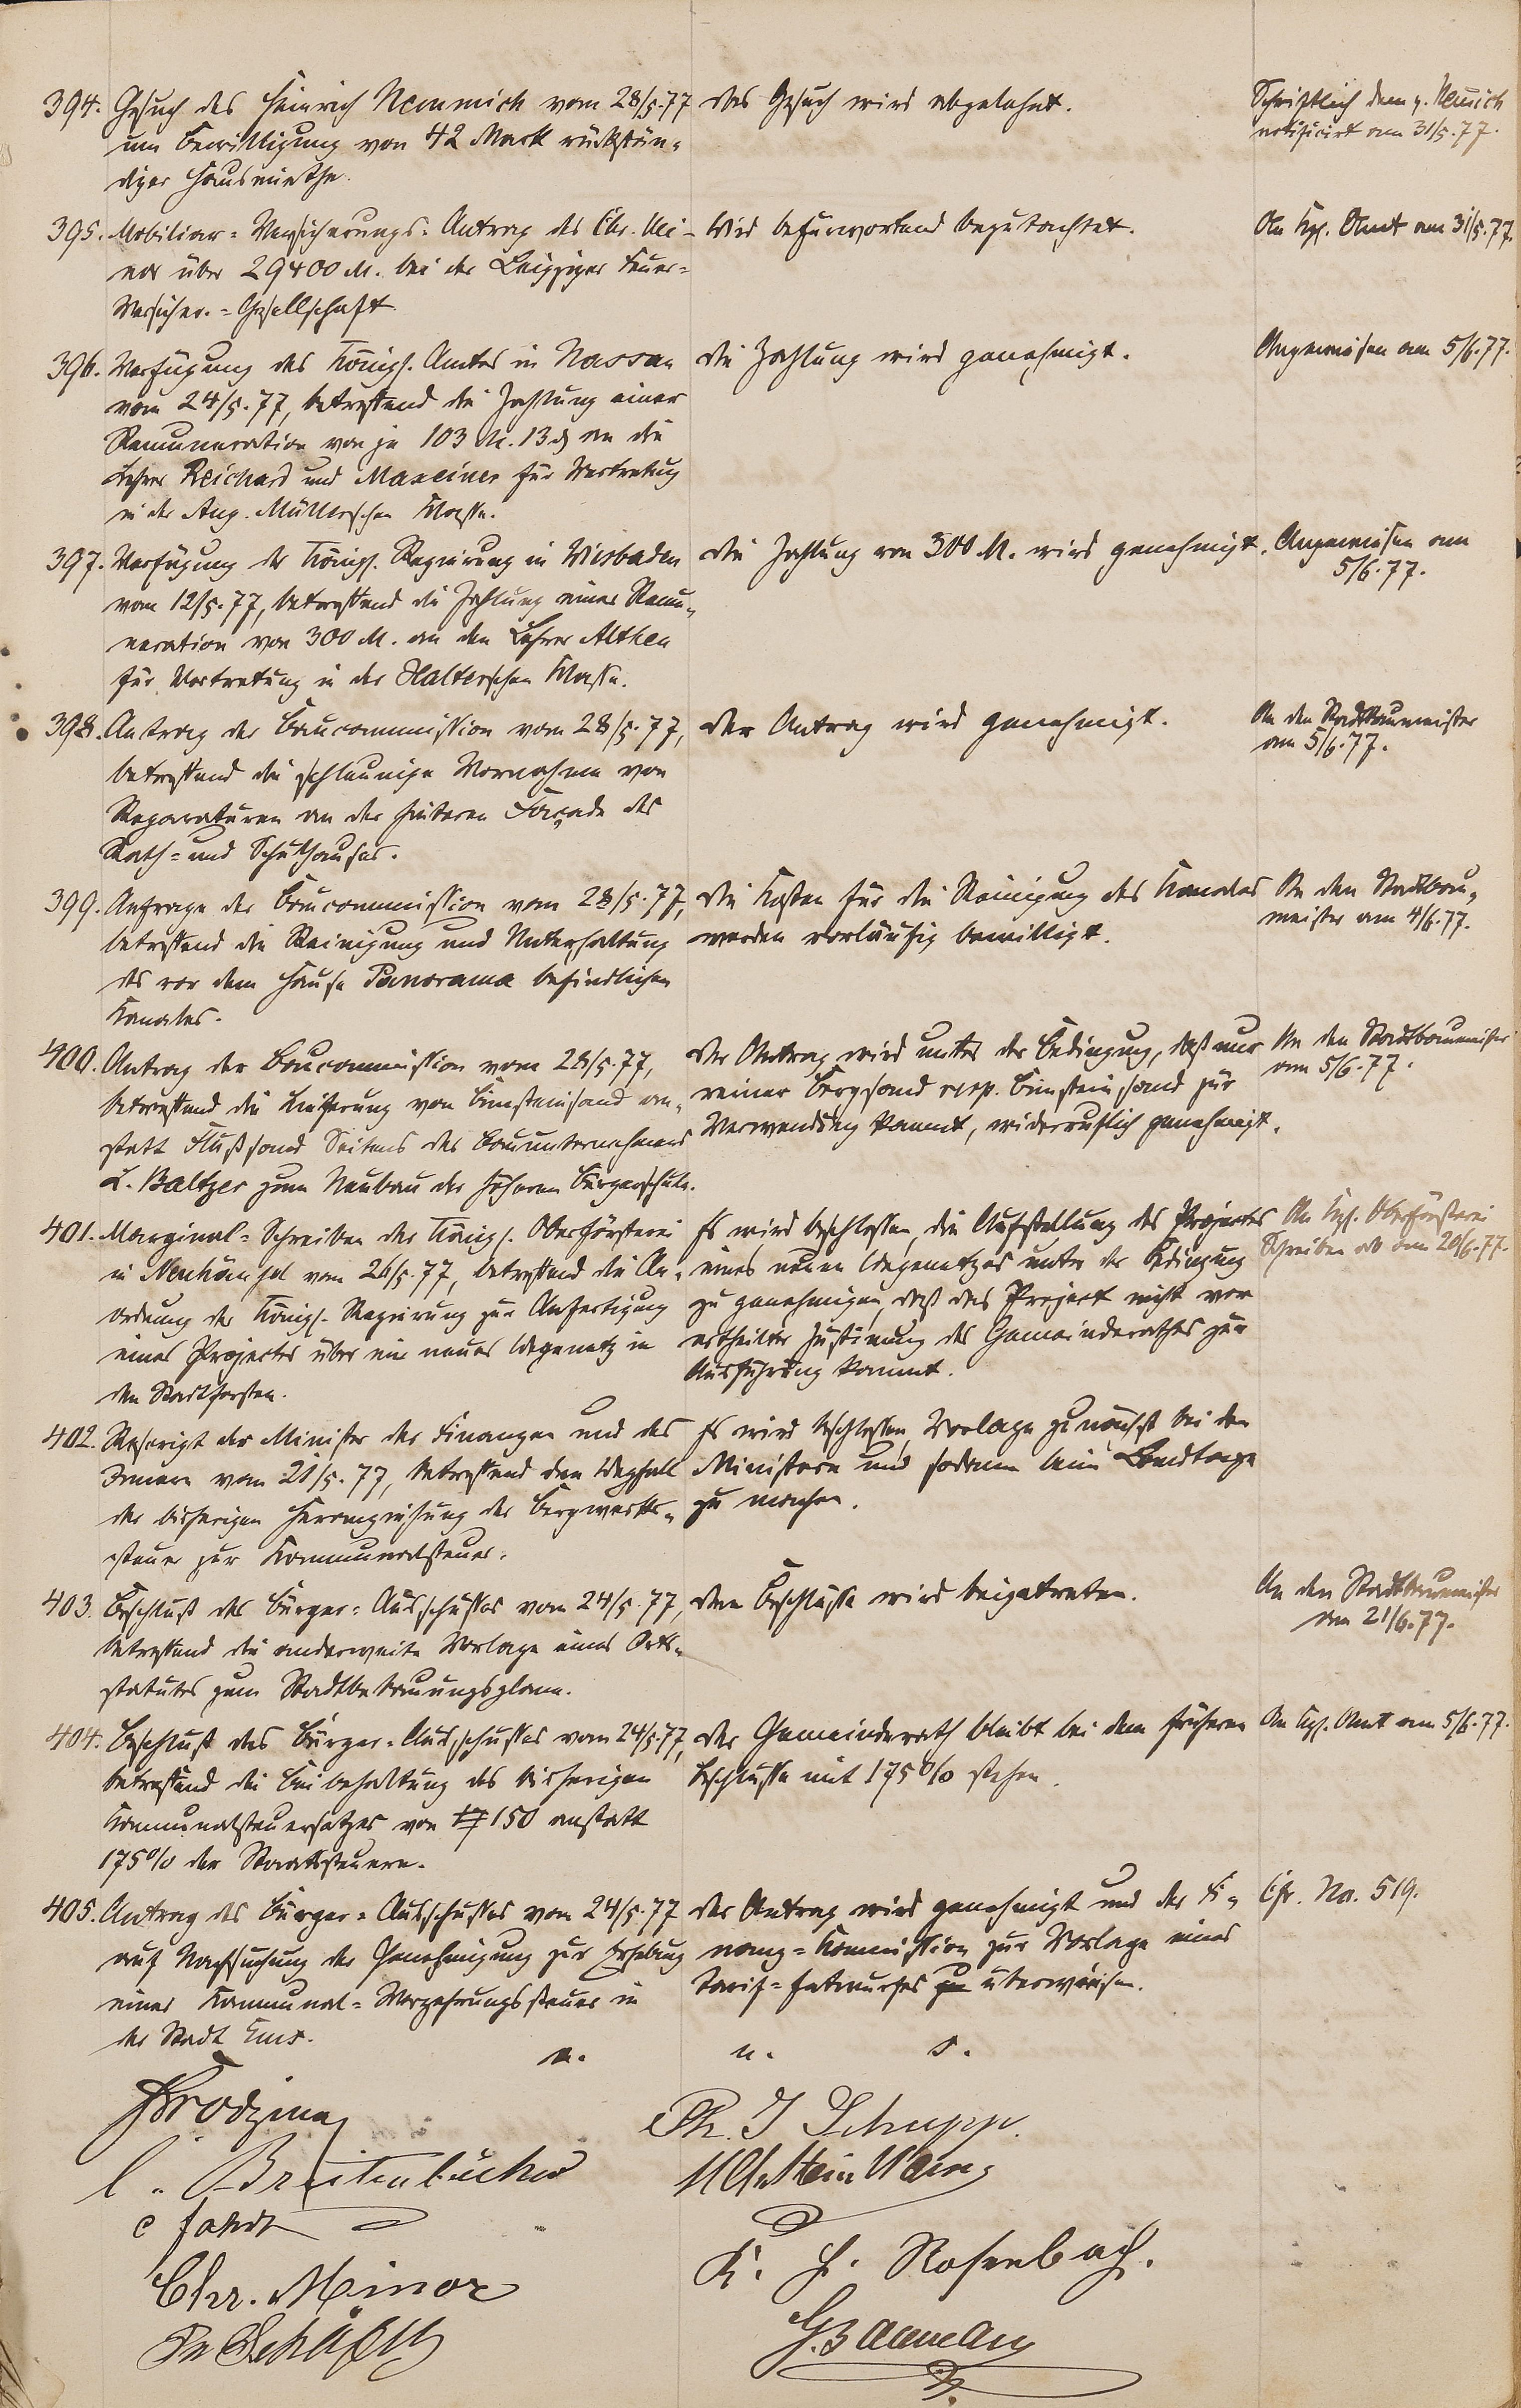 394. Gesuch des Heinrich Nemmich vom 28/5.77
um Bewilligung von 42 Mark rückstän-
diger Hausmiethe.
Das Gesuch wird abgelehnt.
Schriftlich dem
notificirt am 31/5.77.
395. Mobiliar-Versicherungs-Antrag des Chr. Mi-
nor über 29400 M. bei der Leipziger Feuer-
Versicher.-Gesellschaft.
Wird befürwortend begutachtet.
An Kgl. Amt am 31/5.77.
396. Verfügung des Königl. Amtes in Nassau
vom 24/5.77, betreffend die Zahlung einer
Remuneration von je 103 M. 13 ₰ an die
Lehrer Reichard und Maxeiner für Vertretung
in der Aug. Müller'schen Klasse.
Die Zahlung wird genehmigt.
Angewiesen am 5/6.77.
397. Verfügung der Königl. Regierung in Wiesbaden
vom 12/5.77, betreffend die Zahlung einer Remu-
neration von 300 M. an den Lehrer Althen
für Vertretung in der Halter'schen Klasse.
Die Zahlung von 300 M. wird genehmigt.
Angewiesen am
5/6.77.
398. Antrag der Baucommission vom 28/5.77,
betreffend die schleunige Vornahme von
Reparaturen an der hinteren Façade des
Rath- und Schulhauses.
Der Antrag wird genehmigt.
An den Stadtbaumeister
am 5/6.77.
399. Anfrage der Baucommission vom 28/5.77,
betreffend die Reinigung und Unterhaltung
des vor dem Hause Panorama befindlichen
Kanales.
Die Kosten für die Reinigung des Kanales
werden vorläufig bewilligt.
An den Stadtbau-
meister am 4/6.77.
400. Antrag der Baucommission vom 28/5.77,
betreffend die Lieferung von Bimsteinsand an-
statt Flußsand Seitens des Bauunternehmers
L. Baltzer zum Neubau der höheren Bürgerschule.
Der Antrag wird unter der Bedingung, daß nur
reiner Bergsand resp. Bimsteinsand zur
Verwendung kommt, widerruflich genehmigt.
An den Stadtbaumeister
am 5/6.77.
401. Marginal-Schreiben der Königl. Oberförsterei
in Neuhäusel vom 26/5.77, betreffend die An-
ordnung der Königl. Regierung zur Anfertigung
eines Projectes über ein neues Wegenetz in
den Stadtforsten.
Es wird beschlossen, die Aufstellung des Projectes
eines neuen Wegenetzes unter der Bedingung
zu genehmigen, daß das Project nicht vor
ertheilter Zustimung des Gemeinderathes zur
Ausführung kommt.
An Kgl. Oberförsterei
Schreiben ab am 20/6.77.
402. Rescript der Minister der Finanzen und des
Innern vom 21/5.77, betreffend den Wegfall
der bisherigen Heranziehung der Bergwerks-
steuer zur Kommunalsteuer.
Es wird beschlossen, Vorlage zunächst bei den
Ministern und sodann beim Landtage
zu machen.
403. Beschluß des Bürger-Ausschusses vom 24/5.77,
betreffend die anderweite Vorlage eines Orts-
statutes zum Stadtbebauungsplane.
Dem Beschlusse wird beigetreten.
An den Stadtbaumeister
am 21/6.77.
404. Beschluß des Bürger-Ausschusses vom 24/5.77,
betreffend die Beibehaltung des bisherigen
Kommunalsteuersatzes von 150 anstatt
175% der Staatssteuern.
Der Gemeinderath bleibt bei dem früheren
Beschlusse mit 175% stehen.
An Kgl. Amt am 5/6.77.
405. Antrag des Bürger-Ausschusses vom 24/5.77
auf Nachsuchung der Genehmigung zur Erhebung
einer Kommunal-Verzehrungssteuer in
der Stadt Ems.
Der Antrag wird genehmigt und der Fi-
nanz-Kommission zur Vorlage eines
Tarif-Entwurfes zu überweisen.
Cfr. No. 519.
v. u. s.
Ph. J Schupp.
C. Breitenbücher
Chr. Minor
K. H. Rosenbach.